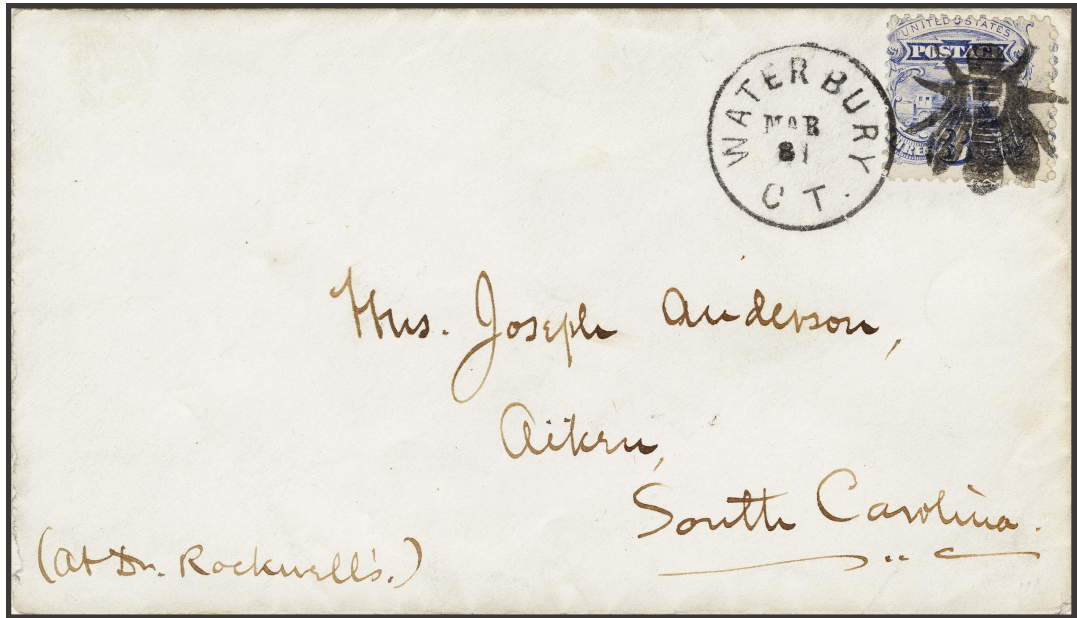 UNITED STATES
POSTAGE
WATERBURY
MAR
31
CT.
Mrs. Joseph Anderson,
Aiken,
South Carolina.
(At Dr. Rockwell's.)